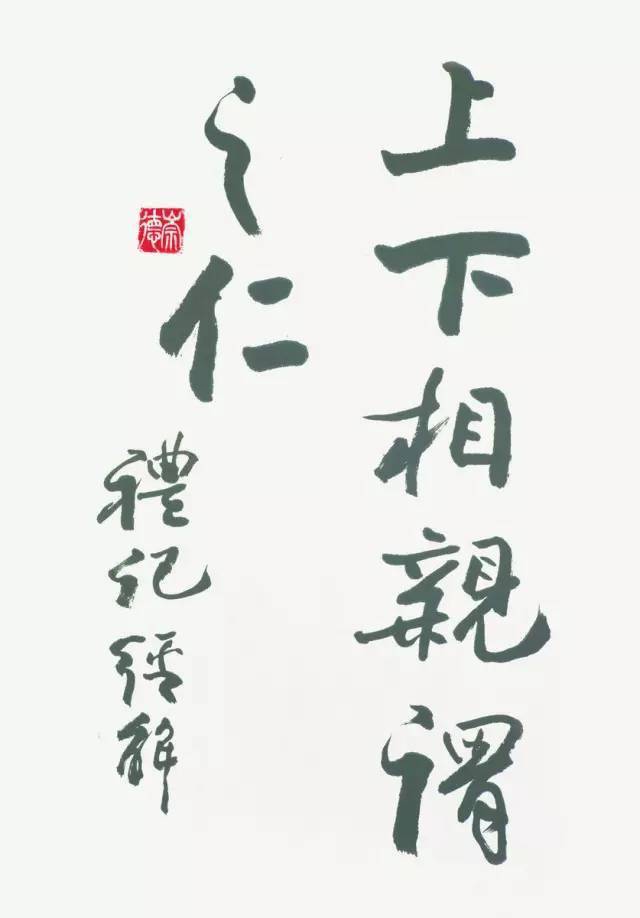 上下相親謂
之仁
禮記經解
崇德